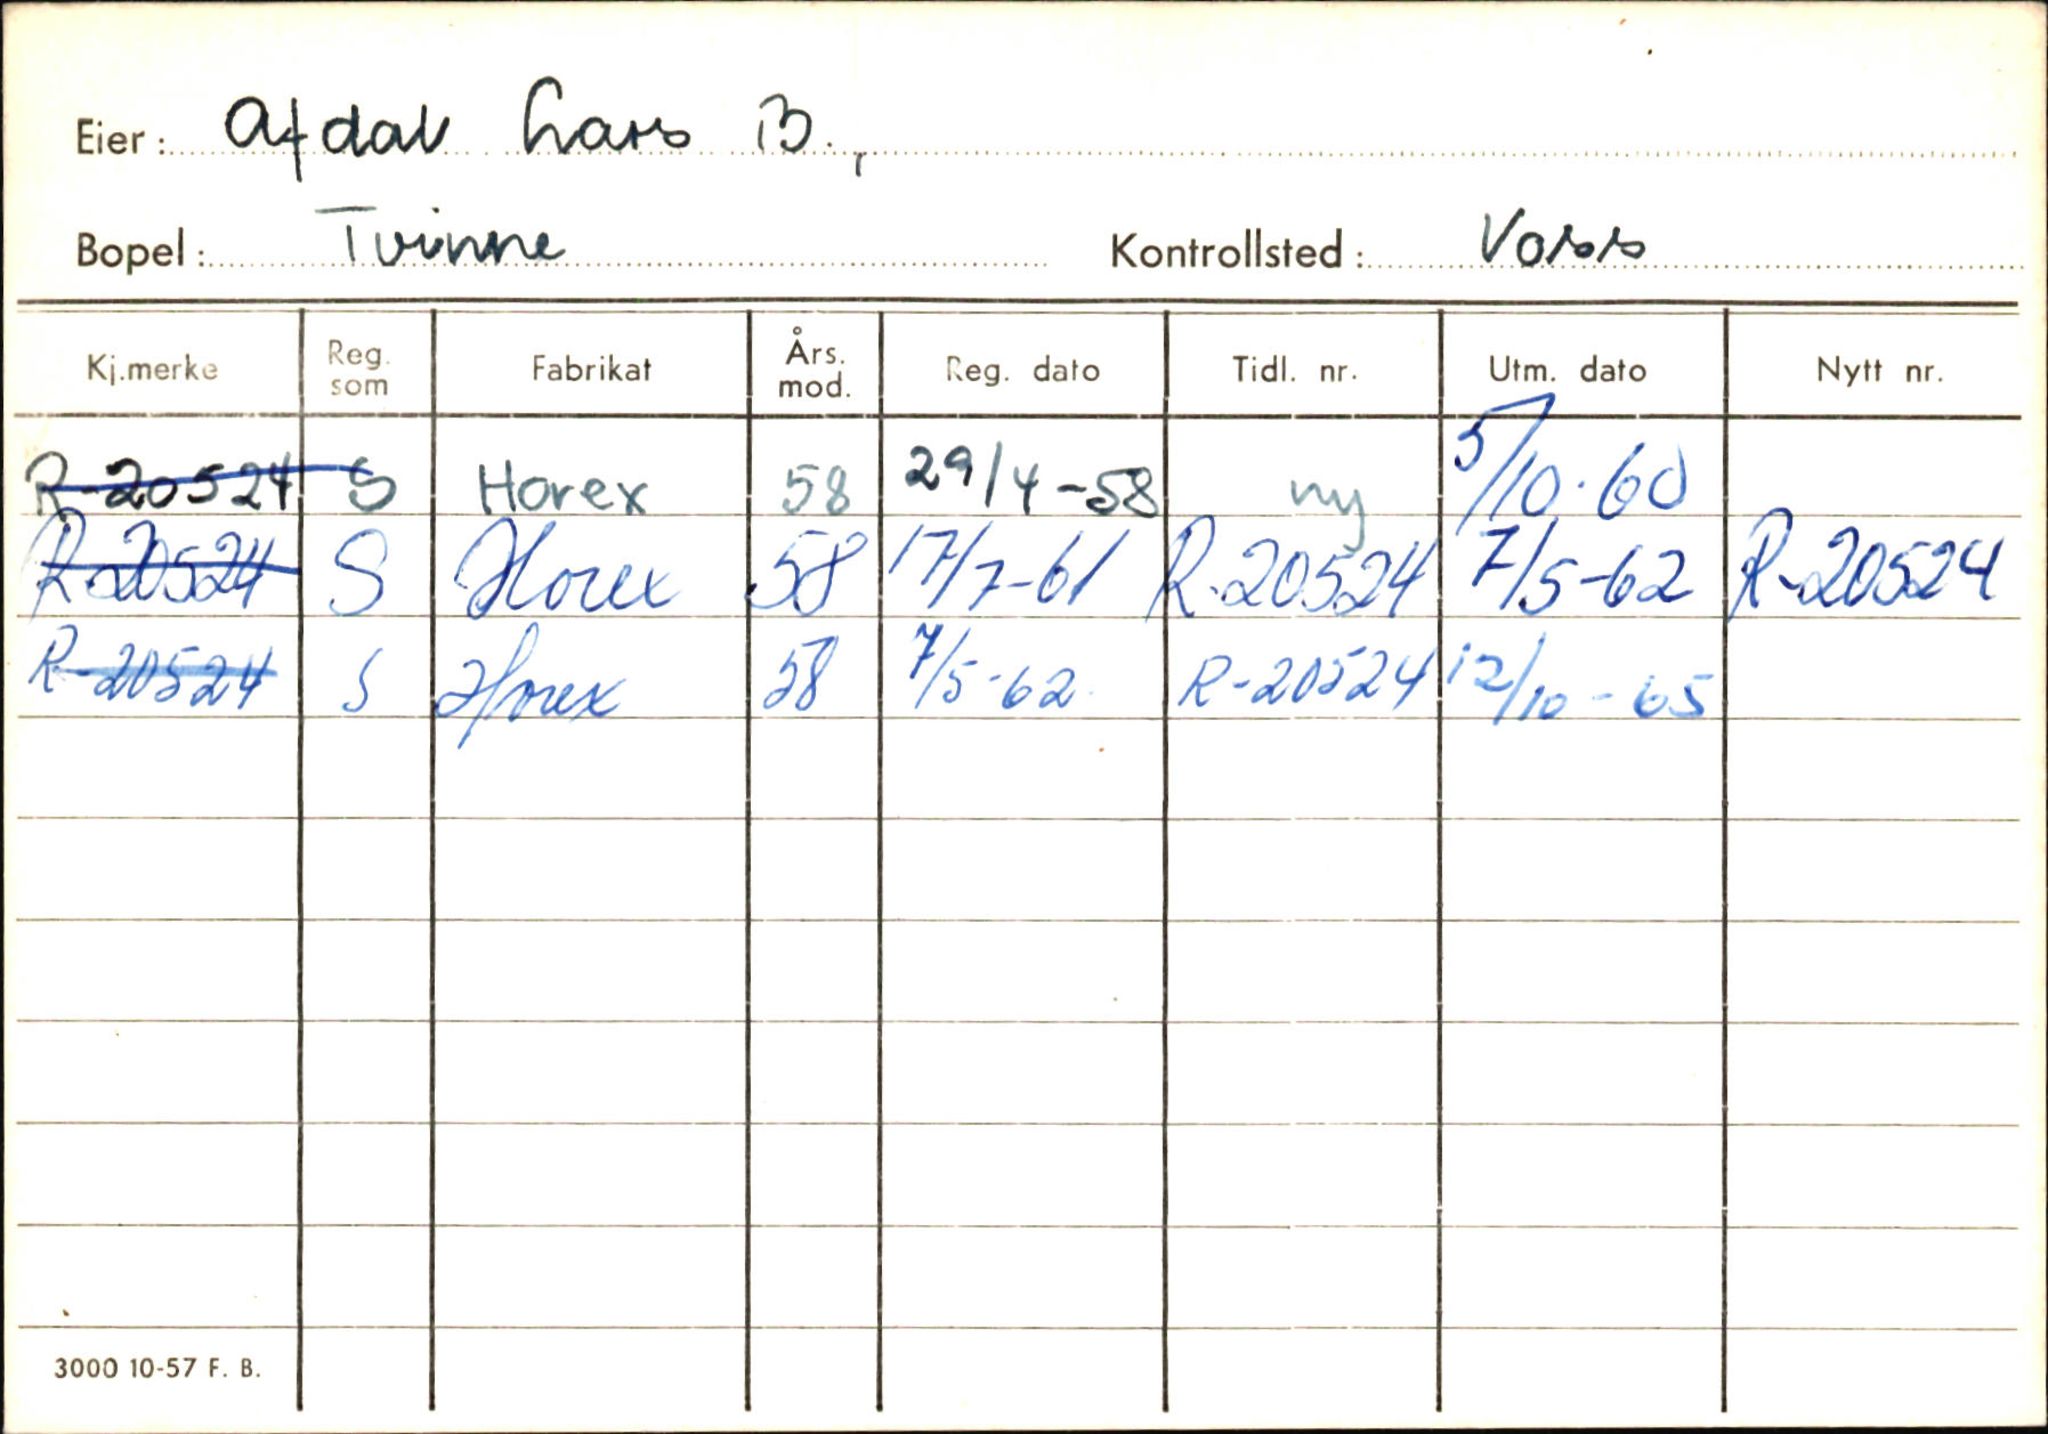 Eier: Afdal Lars B.,
Bopel: Tvinne Kontrollsted: Voss
Kj.merke Reg. som Fabrikat Års. mod. Reg. dato Tidl. nr. Utm. dato Nytt nr.
R-20524 S Horex 58 29/4-58 ny 5/10-60
R-20524 S Horex 58 17/7-61 R-20524 7/5-62 R-20524
R-20524 S Horex 58 7/5-62 R-20524 12/10-65
3000 10-57 F. B.